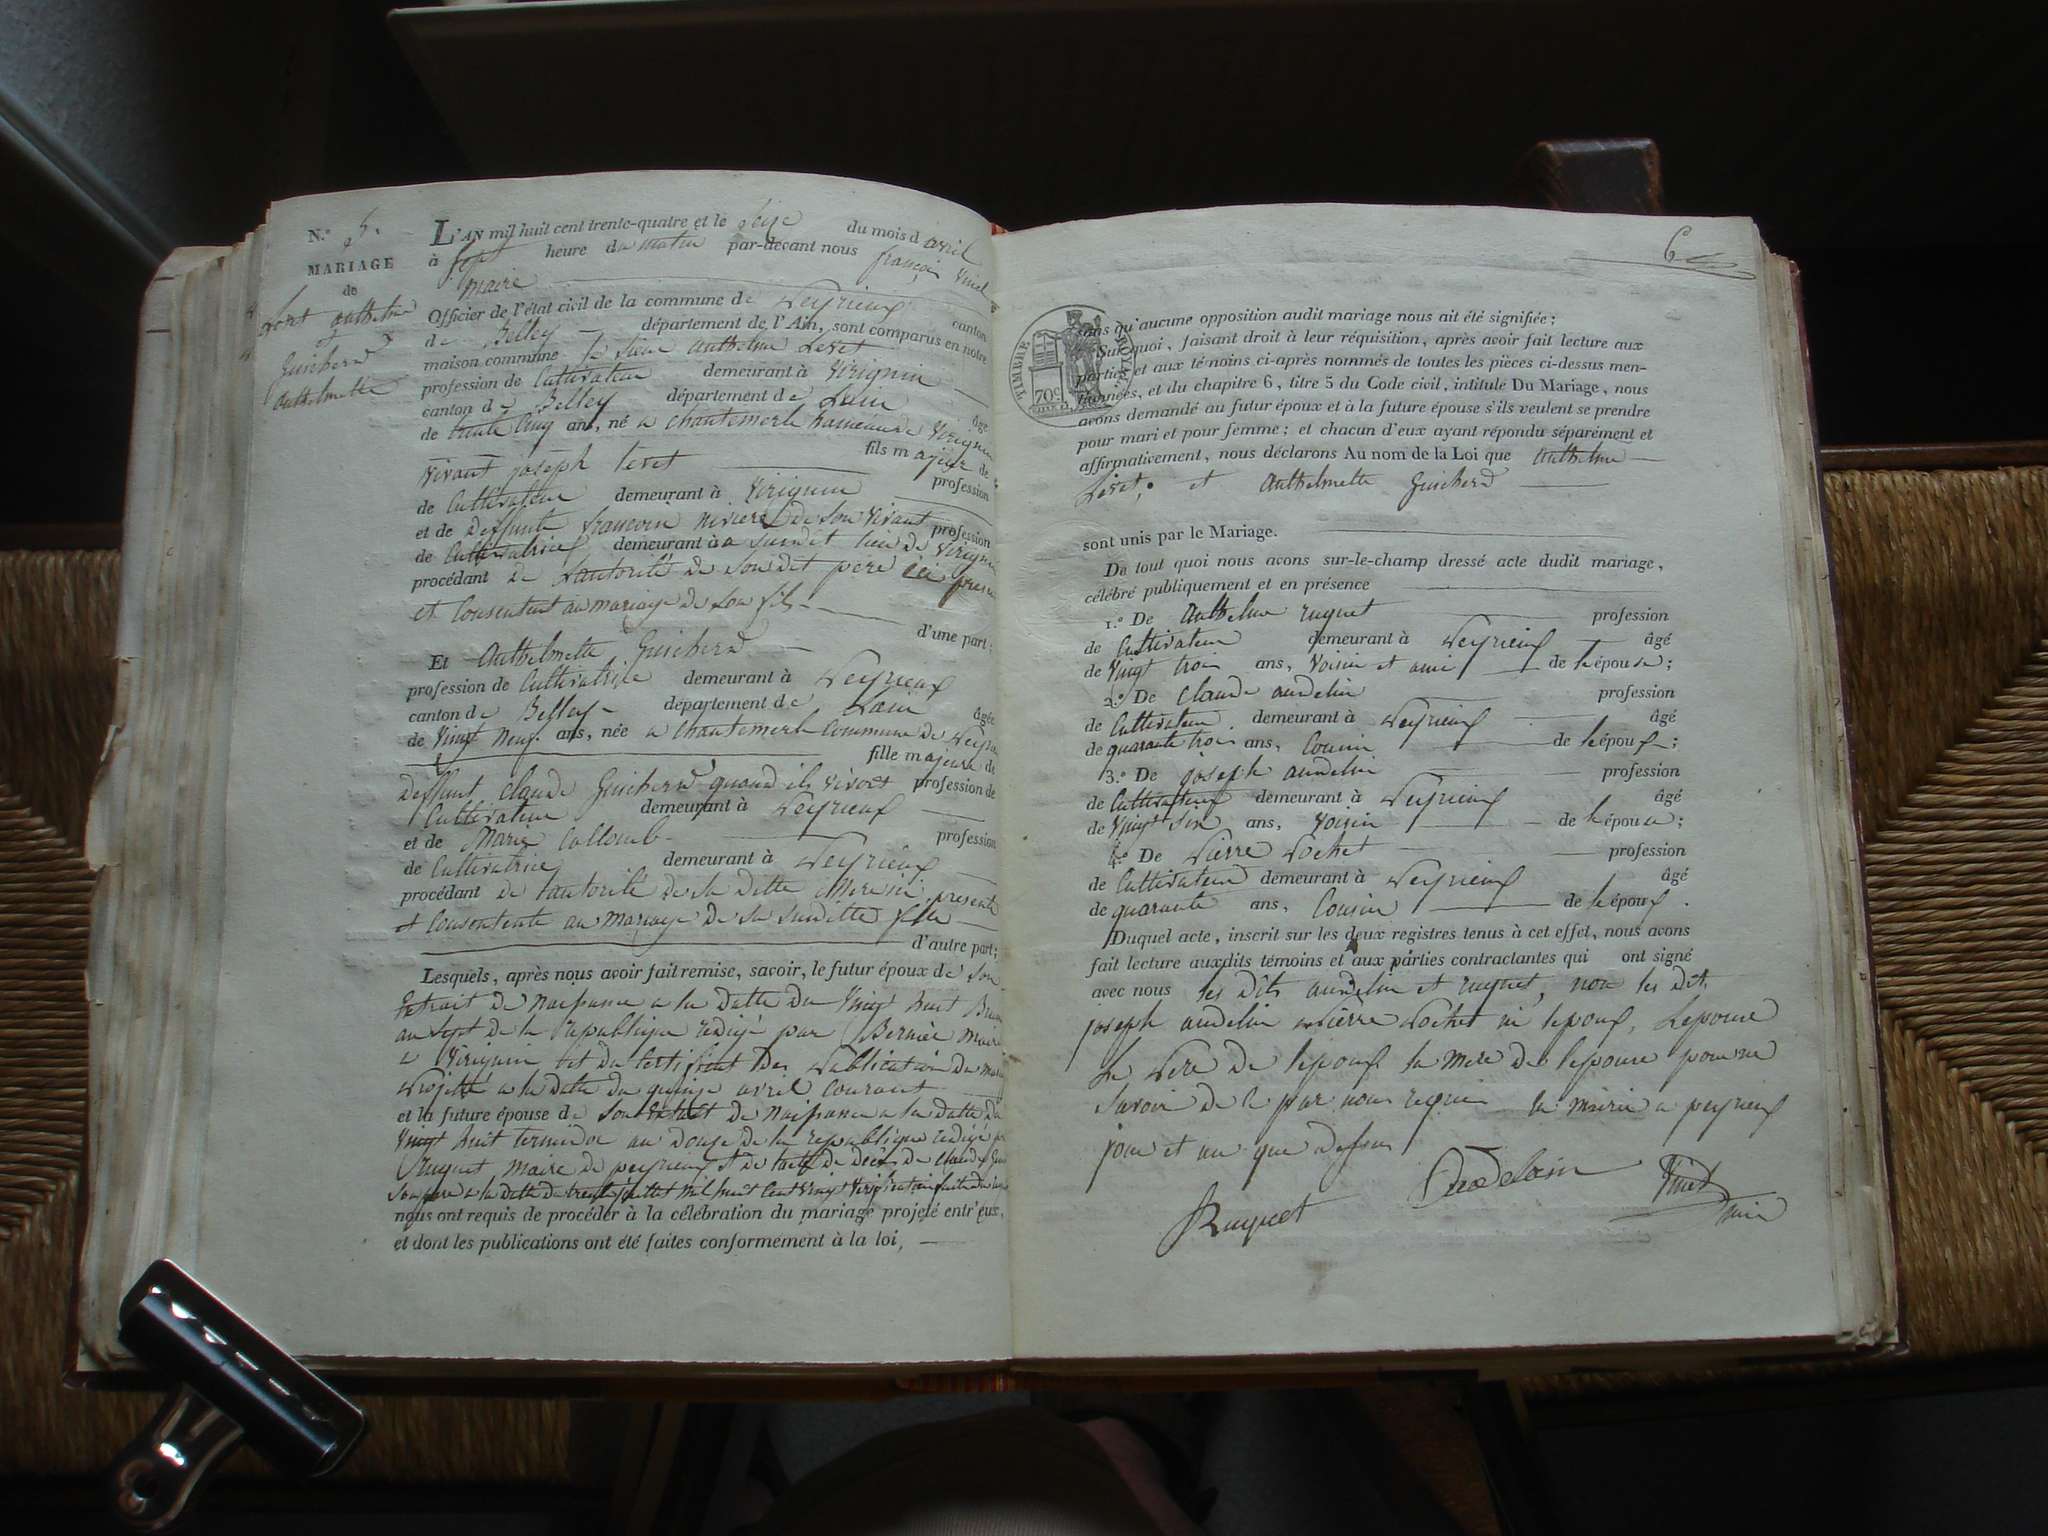 N.º 5.
MARIAGE
de
Loret anthelme
et
Guicherd
Anthelmette
L'AN mil huit cent trente-quatre et le Seize du mois d avril
à sept heure du matin par-devant nous françois Vinet
maire
Officier de l'état civil de la commune de Peyrieux canton
de Belley département de l'Ain, sont comparus en notre
maison commune le sieur Anthelme Leret
profession de Cultivateur demeurant à Virignin
canton de Belley département de Lain âgé
de trente Cinq ans, né a chantemerle hameau de Virignin
fils majeur de
vivant joseph leret profession
de Cultivateur demeurant à Virignin
et de deffunte françoise de son vivant profession
de Cultivatrice demeurant à a susdit lieu de Virignin
procédant de Lautorité de son dit père ici present
et Consentent au mariage de son fils d'une part;
Et Anthelmette Guicherd
profession de Cultivatrice demeurant à Peyrieux
canton de Belley département de Lain âgée
de Vingt Neuf ans, née a chantemerle Commune de Peyrieux
fille majeure de
deffunt claude Guicherd quand il vivoit profession de
Cultivateur demeurant à Peyrieux
et de Marie Collomb profession
de Cultivatrice demeurant à Peyrieux
procédant de lautorité de sa ditte Mere ici presente
et Consentente au mariage de sa susditte fille
d'autre part;
Lesquels, après nous avoir fait remise, savoir, le futur époux de son
Extrait de naissance a la datte du Vingt huit
an sept de la republique redigé par Bernier maire
a Virignin et du Certificat des Publication du
Projetté a la datte du quinze avril Courant
et la future épouse de son Extrait de Naissance a la datte du
Vingt huit termidor an douze de la republique redigé par
Ruguet maire de peyrieux et de de Deces de claude
son pere a la datte du trente juillet mil huit Cent Vingt
nous ont requis de procéder à la célébration du mariage projeté entr'eux,
et dont les publications ont été faites conformement à la loi,
6
TIMBRE ROYAL
70 c
sans qu'aucune opposition audit mariage nous ait été signifiée;
Sur quoi, faisant droit à leur réquisition, après avoir fait lecture aux
parties et aux témoins ci-après nommés de toutes les pièces ci-dessus men-
tionnées, et du chapitre 6, titre 5 du Code civil, intitulé Du Mariage, nous
avons demandé au futur époux et à la future épouse s'ils veulent se prendre
pour mari et pour femme; et chacun d'eux ayant répondu séparément et
affirmativement, nous déclarons Au nom de la Loi que Anthelme
Leret, et Anthelmette Guicherd
sont unis par le Mariage.
De tout quoi nous avons sur-le-champ dressé acte dudit mariage,
célébré publiquement et en présence
1.º De Anthelme ruguet profession
de Cultivateur demeurant à Peyrieux âgé
de Vingt trois ans, Voisin et ami de lépouse;
2.º De claude audelin profession
de Cultivateur demeurant à Peyrieux âgé
de quarante trois ans, Cousin de lépoux;
3.º De joseph audelin profession
de Cultivateur demeurant à Peyrieux âgé
de Vingt Six ans, Voisin de lépouse;
4.º De Pierre Pochet profession
de Cultivateur demeurant à Peyrieux âgé
de quarante ans, Cousin de lépoux.
Duquel acte, inscrit sur les deux registres tenus à cet effet, nous avons
fait lecture auxdits témoins et aux parties contractantes qui ont signé
avec nous les dits audelin et ruguet, non les dit
joseph audelin Pierre Pochet ni lepoux, Lepouse
Le Pere de lepoux la mere de lepouse pour ne
Savoir de ce par nous requis la mairie a peyrieux
jour et an que dessus
Ruguet Audelain Vinet
maire